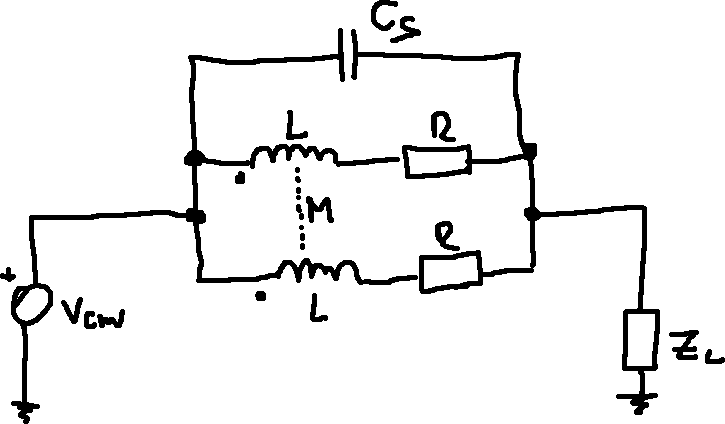 Cs
L
R
M
R
L
+
Vcmv
ZL